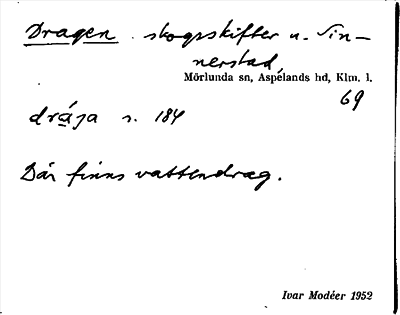 Dragen. skogsskifter u. Sin-
nerstad,
Mörlunda sn, Aspelands hd, Klm. l.
69
dráɡa s. 184
Där finns vattendrag.
Ivar Modéer 1952